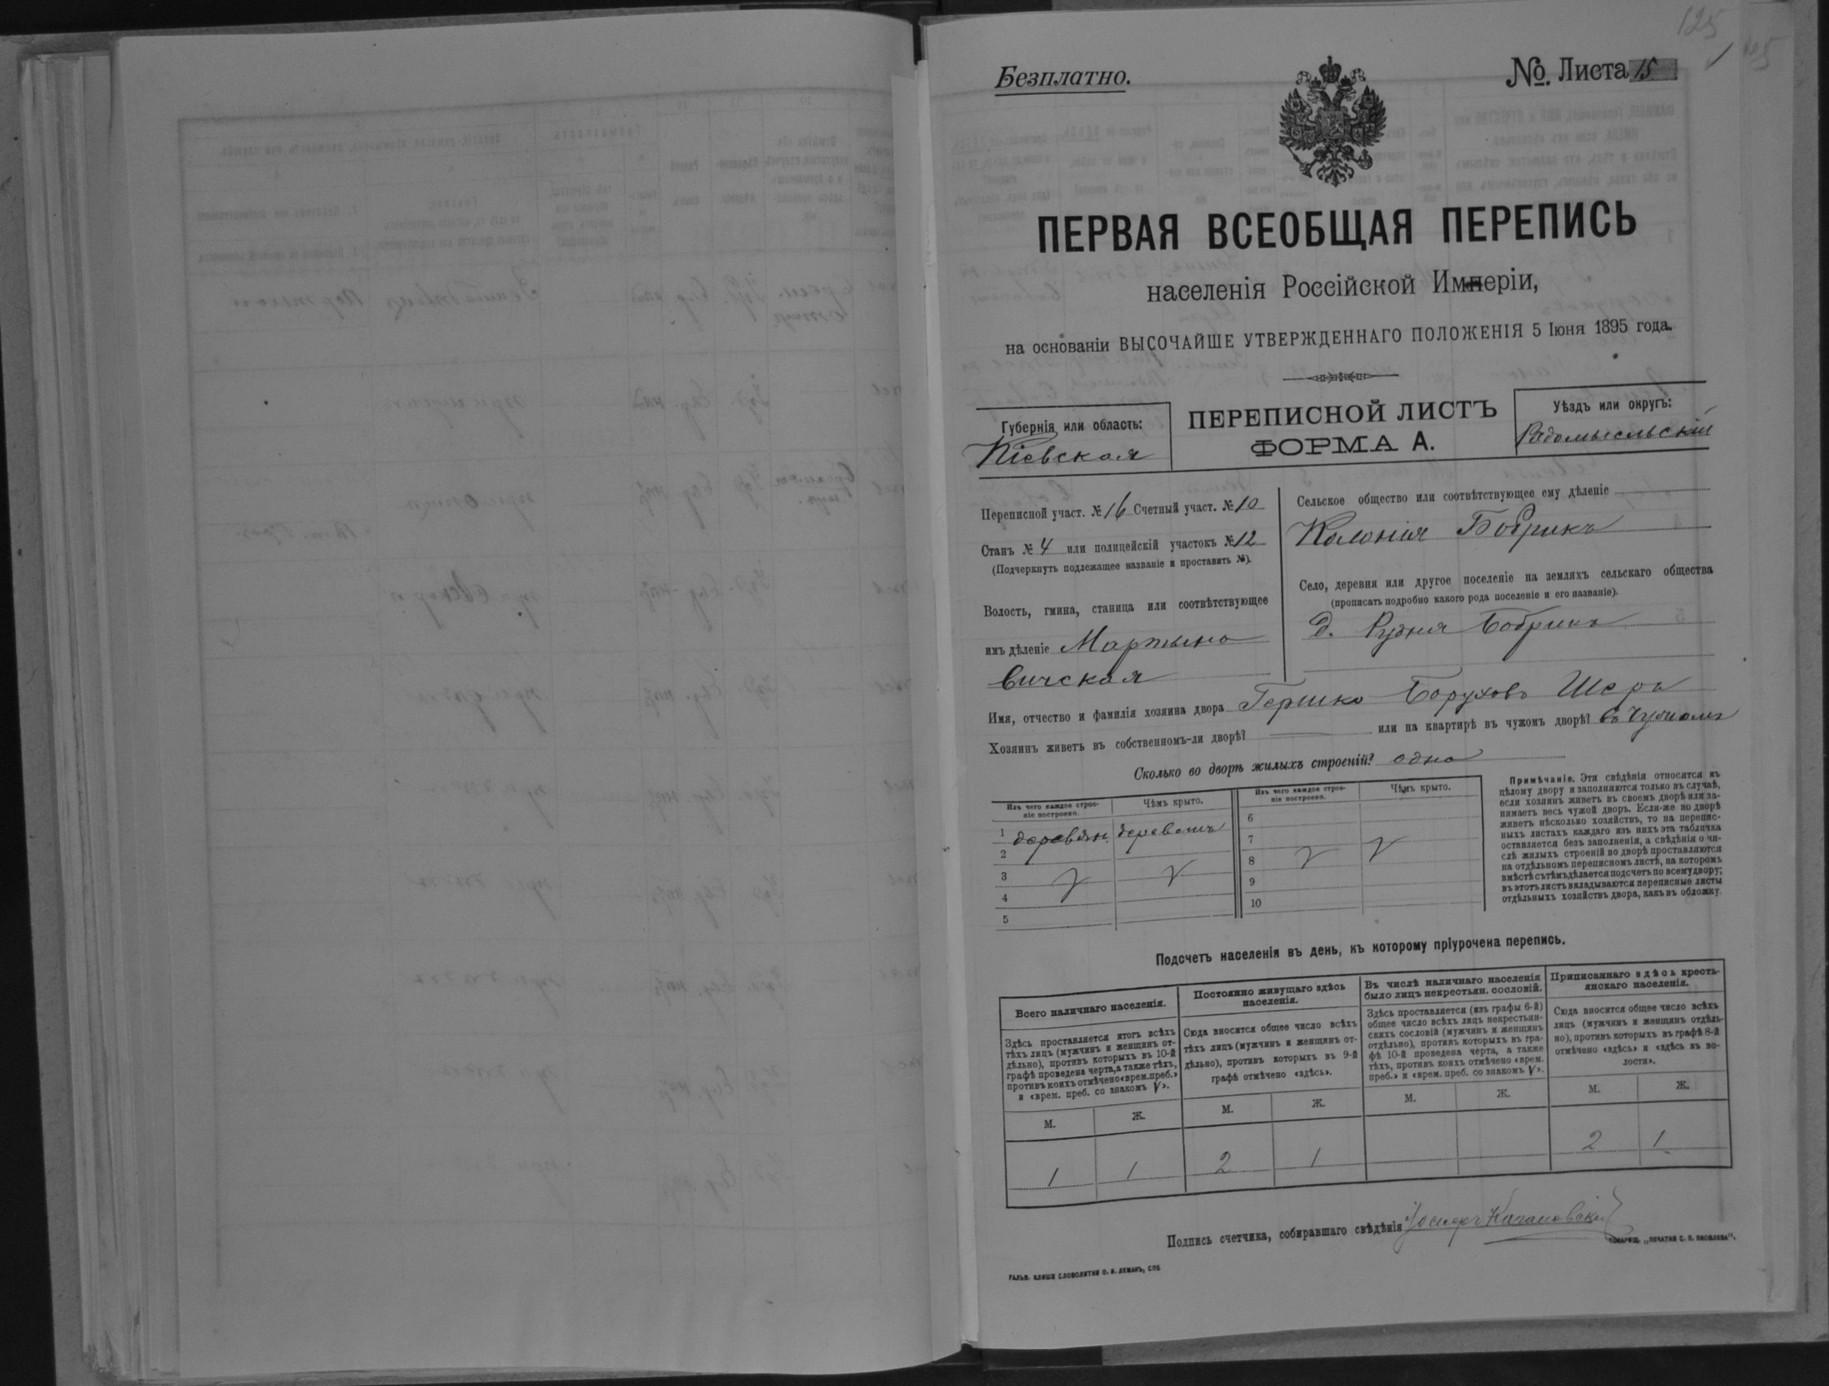 125
Безплатно.
№ Листа 15
ПЕРВАЯ ВСЕОБЩАЯ ПЕРЕПИСЬ
населенія Россійской Имперіи,
на основаніи ВЫСОЧАЙШЕ УТВЕРЖДЕННАГО ПОЛОЖЕНІЯ 5 Іюня 1895 года.
Губернія или область:
Кіевская
ПЕРЕПИСНОЙ ЛИСТЪ
ФОРМА А.
Уѣздъ или округъ:
Радомысльскій
Переписной участ. № 16 Счетный участ. № 10
Станъ № 4 или полицейскій участокъ № 12
(Подчеркнуть подлежащее названіе и проставить №).
Волость, гмина, станица или соотвѣтствующее
имъ дѣленіе Мартыно
вичская
Сельское общество или соотвѣтствующее ему дѣленіе
Колонія Бобрикъ
Село, деревня или другое поселеніе на земляхъ сельскаго общества
(прописать подробно какого рода поселеніе и его названіе).
д. Рудня Бобрикъ
Имя, отчество и фамилія хозяина двора Гершко Боруховъ Шеръ
Хозяинъ живетъ въ собственномъ-ли дворѣ? или на квартирѣ въ чужомъ дворѣ? въ чужомъ
Сколько во дворѣ жилыхъ строеній? одно
Изъ чего каждое строе-
ніе построено.
Чѣмъ крыто.
1 деревян. деревомъ
2
3
4
5
Изъ чего каждое строе-
ніе построено.
Чѣмъ крыто.
6
7
8
9
10
Примѣчаніе. Эти свѣдѣнія относятся къ
цѣлому двору и заполняются только въ случаѣ,
если хозяинъ живетъ въ своемъ дворѣ или за-
нимаетъ весь чужой дворъ. Если-же во дворѣ
живетъ нѣсколько хозяйствъ, то на перепис-
ныхъ листахъ каждаго изъ нихъ эта табличка
оставляется безъ заполненія, а свѣдѣнія о чи-
слѣ жилыхъ строеній во дворѣ проставляются
на отдѣльномъ переписномъ листѣ, на которомъ
вмѣстѣ съ тѣмъ дѣлается подсчетъ по всему двору;
въ этотъ листъ вкладываются переписные листы
отдѣльныхъ хозяйствъ двора, какъ въ обложку.
Подсчетъ населенія въ день, къ которому пріурочена перепись.
Всего наличнаго населенія.
Здѣсь проставляется итогъ всѣхъ
тѣхъ лицъ (мужчинъ и женщинъ от-
дѣльно), противъ которыхъ въ 10-й
графѣ проведена черта, а также тѣхъ,
противъ коихъ отмѣчено «врем. преб.»
и «врем. преб. со знакомъ V».
М. Ж.
1 1
Постоянно живущаго здѣсь
населенія.
Сюда вносится общее число всѣхъ
тѣхъ лицъ (мужчинъ и женщинъ от-
дѣльно), противъ которыхъ въ 9-й
графѣ отмѣчено «здѣсь».
М. Ж.
2 1
Въ числѣ наличнаго населенія
было лицъ некрестьян. сословій.
Здѣсь проставляется (изъ графы 6-й)
общее число всѣхъ лицъ некрестьян-
скихъ сословій (мужчинъ и женщинъ
отдѣльно), противъ которыхъ въ гра-
фѣ 10-й проведена черта, а также
тѣхъ, противъ коихъ отмѣчено «врем.
преб.» и «врем. преб. со знакомъ V».
М. Ж.
Приписаннаго здѣсь кресть-
янскаго населенія.
Сюда вносится общее число всѣхъ
лицъ (мужчинъ и женщинъ отдѣль-
но), противъ которыхъ въ графѣ 8-й
отмѣчено «здѣсь» и «здѣсь въ во-
лости».
М. Ж.
2 1
Подпись счетчика, собиравшаго свѣдѣнія
ГАЛЬВ. КЛИШЕ СЛОВОЛИТНИ О. И. ЛЕМАНЪ, СПБ
ТОВАРИЩ. „ПЕЧАТНЯ С. П. ЯКОВЛЕВА".